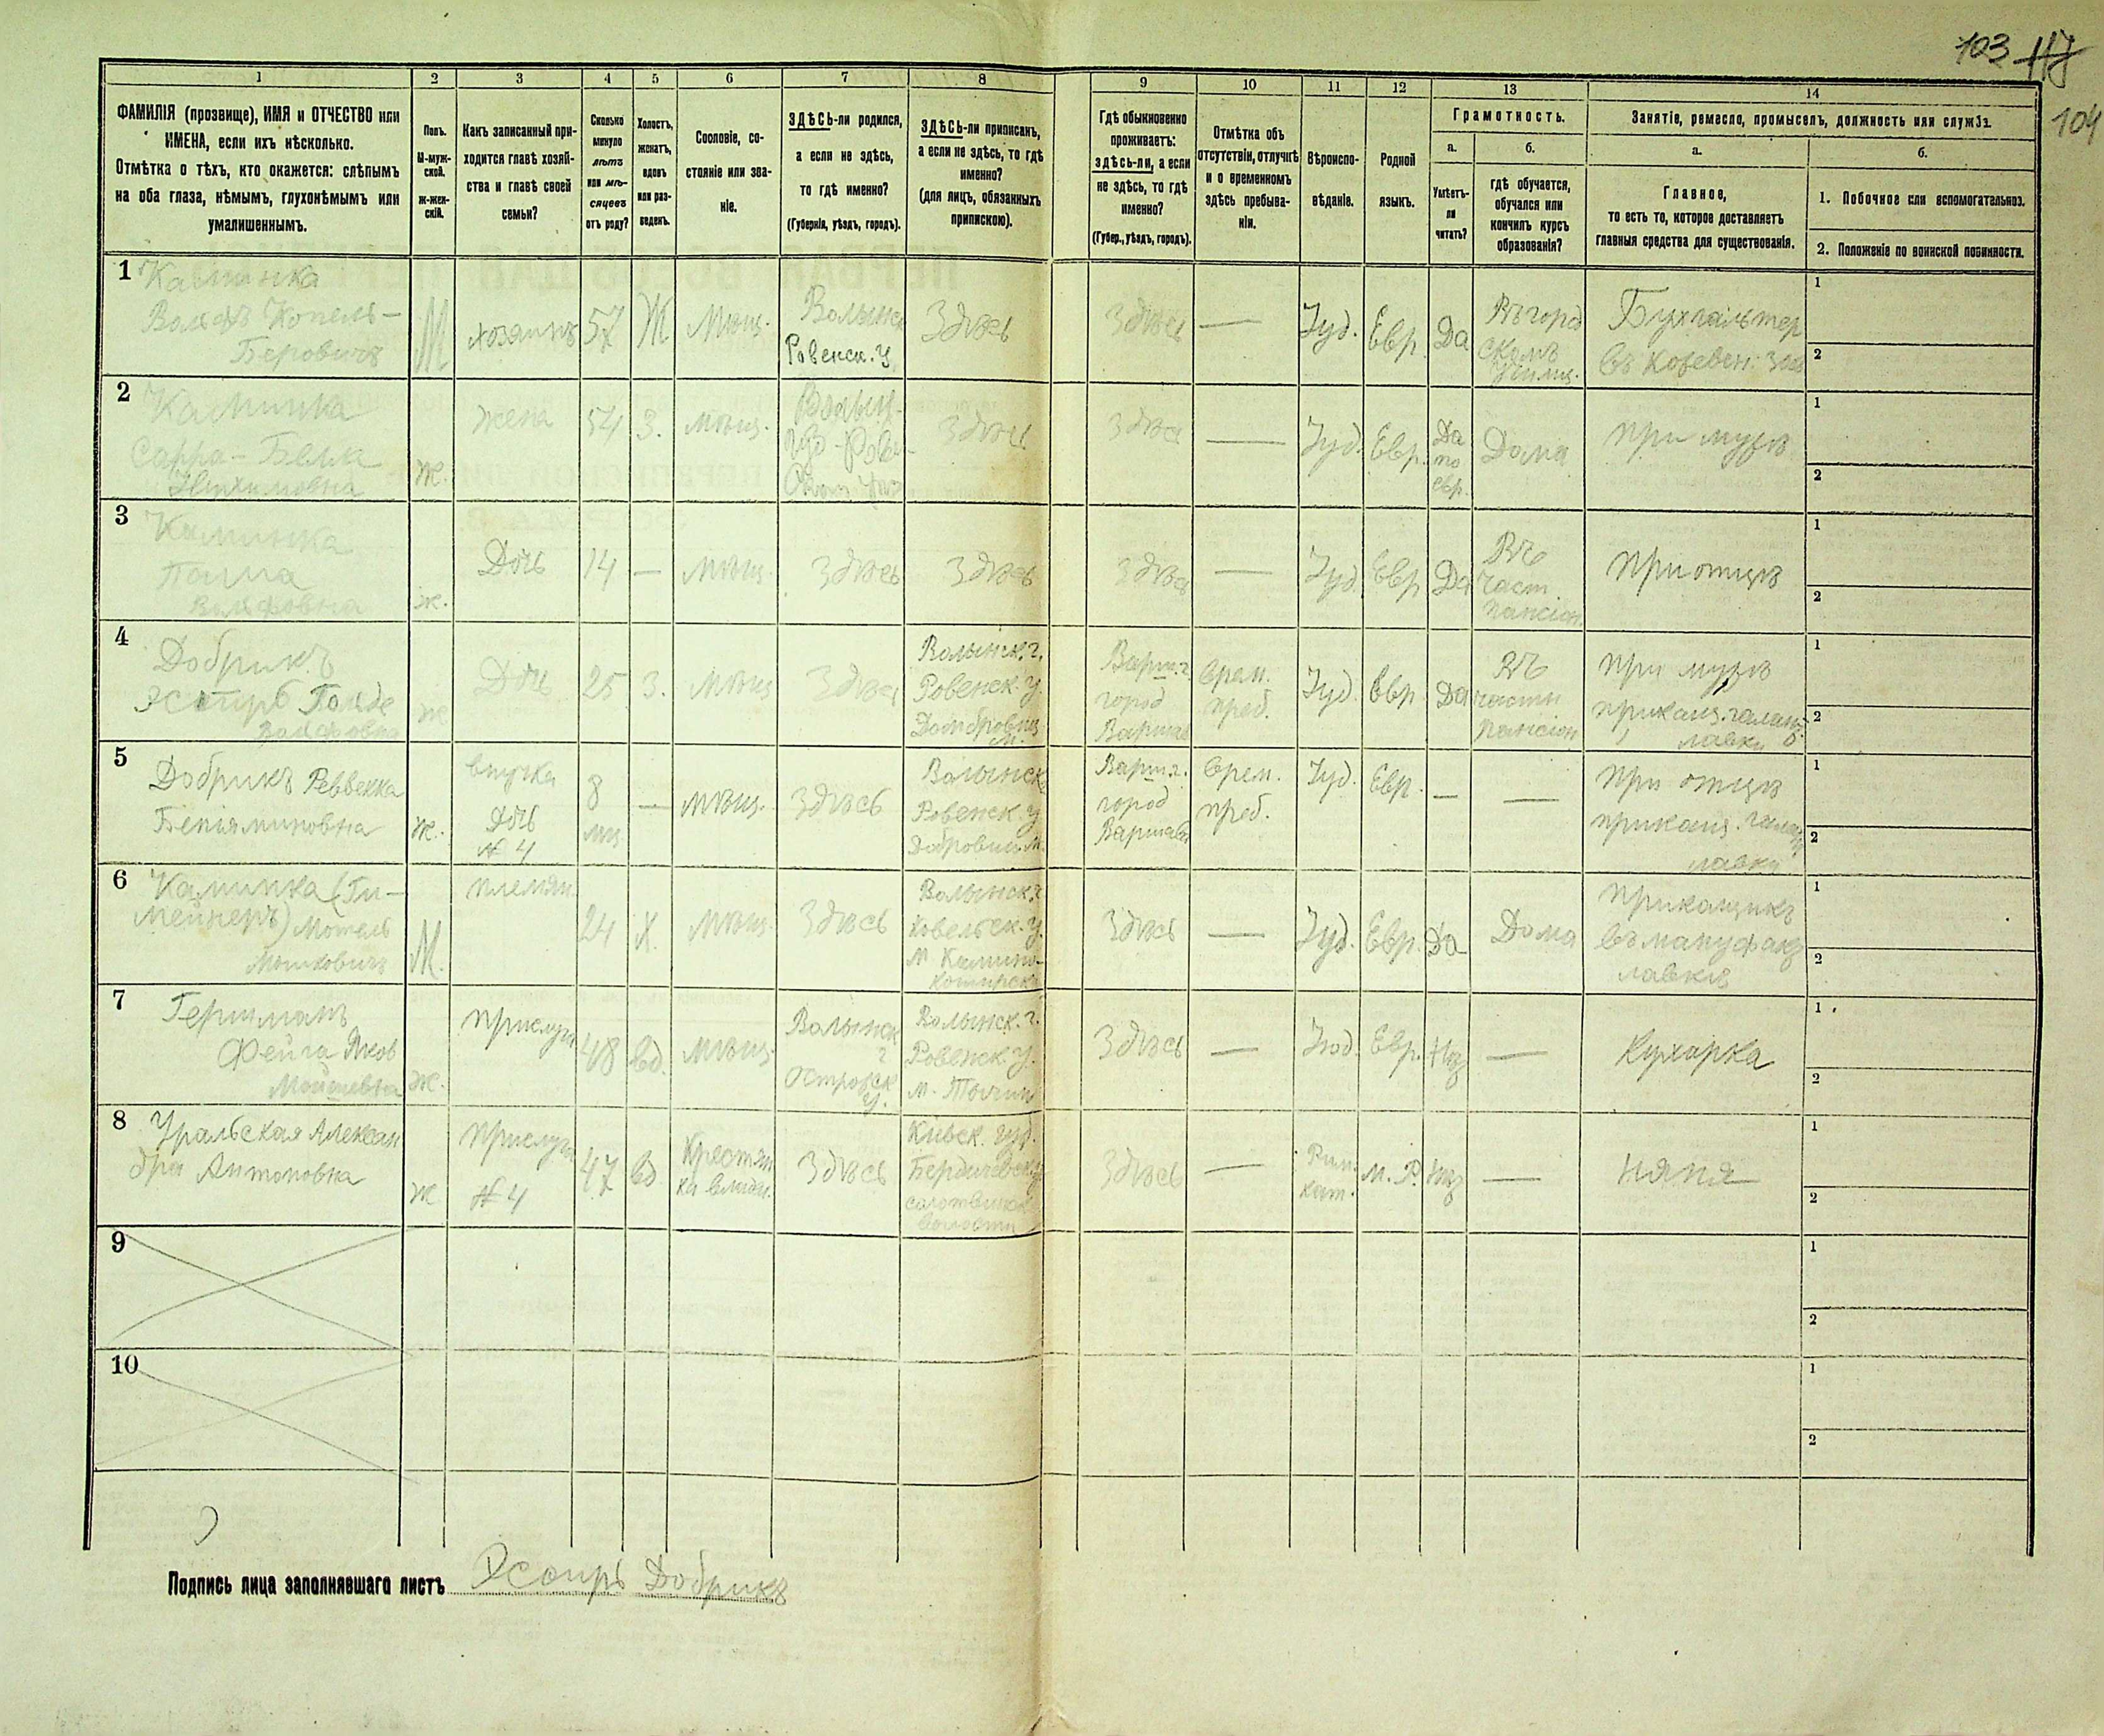 103 117
104
1
2
3
4
5
6
7
8
9
10
11
12
13
14
ФАМИЛІЯ (прозвище), ИМЯ и ОТЧЕСТВО или
ИМЕНА, если ихъ нѣсколько.
Отмѣтка о тѣхъ, кто окажется: слѣпымъ
на оба глаза, нѣмымъ, глухонѣмымъ или
умалишеннымъ.
Полъ.
М-муж-
ской.
Ж-жен-
скій.
Какъ записанный при-
ходится главѣ хозяй-
ства и главѣ своей
семьи?
Сколько
минуло
лѣтъ
или мѣ-
сяцевъ
отъ роду?
Холостъ,
женатъ,
вдовъ
или раз-
веденъ.
Сословіе, со-
стояніе или зва-
ніе.
ЗДѢСЬ-ли родился,
а если не здѣсь,
то гдѣ именно?
(Губернія, уѣздъ, городъ).
ЗДѢСЬ-ли приписанъ,
а если не здѣсь, то гдѣ
именно?
(для лицъ, обязанныхъ
припискою).
Гдѣ обыкновенно
проживаетъ:
здѣсь-ли, а если
не здѣсь, то гдѣ
именно?
(Губер., уѣздъ, городъ).
Отмѣтка объ
отсутствіи, отлучкѣ
и о временномъ
здѣсь пребыва-
ніи.
Вѣроиспо-
вѣданіе.
Родной
языкъ.
Грамотность.
а.
Умѣетъ-
ли
читать?
б.
гдѣ обучается,
обучался или
кончилъ курсъ
образованія?
Занятіе, ремесло, промыселъ, должность или служба.
а.
Главное,
то есть то, которое доставляетъ
главныя средства для существованія.
б.
1. Побочное или вспомогательное.
2. Положеніе по воинской повинности.
1 Каминка
Вольфъ Копель-
Беровичъ
М
хозяинъ
57
Ж
Мѣщ.
Волынск
Ровенск. у
Здѣсь
Здѣсь
—
Іуд.
Евр.
Да
Въ город
скомъ
училищ.
Бухгалтер
въ кожевен. зав
1
2
2 Каминка
Сарра-Бейла
Ж.
жена
54
З.
мѣщ.
Волын-
Здѣсь
Здѣсь
—
Іуд.
Евр.
Да
по
евр.
Дома
при мужѣ
1
2
3 Каминка
Вольфовна
ж.
Дочь
14
—
мѣщ.
Здѣсь
Здѣсь
Здѣсь
—
Іуд.
Евр
Да
Въ
част.
пансіон.
при отцѣ
1
2
4 Добрикъ
Эсѳирь Польде
Вольфовна
ж
Дочь
25
З.
мѣщ
Здѣсь
Волынск. г.
Ровенск. у.
Варш. г
город
Варшав
врем.
преб.
Іуд.
Евр
Да
Въ
частн
пансіон
при мужѣ
приказщ. галант.
лавки
1
2
5 Добрикъ Реввекка
Беніяминовна
ж.
внучка
дочь
№ 4
8
мц
—
мѣщ.
Здѣсь
Волынск
Ровенск. у
Варш. г.
город
Варшава
врем.
преб.
Іуд.
Евр.
—
—
при отцѣ
приказщ. галант.
лавки
1
2
6 Каминка (Ги-
мейнеръ) Мотель
Мошковичъ
М.
племян.
24
Х.
мѣщ.
Здѣсь
Волынск. г
Ковельск. у.
м Камино-
Коширск
Здѣсь
—
Іуд.
Евр.
Да
Дома
приказщикъ
въ мануфакт
лавкѣ
1
2
7 Гершманъ
Фейга Яков
Мойшевна
ж.
прислуга
48
вд.
мѣщ.
Волынск
г
Острожск
у.
Волынск. г.
Ровенск. у.
м. Тучин
Здѣсь
—
Іуд.
Евр.
Нѣт
—
Кухарка
1
2
8 Уральская Алексан
дра Антоновна
ж
прислуга
№ 4
47
вд
Крестьян
ка
Здѣсь
Кіевск. губ.
Бердичевск. у
волости
Здѣсь
—
Рим.
кат.
м. Р.
Нѣт
—
няня
1
2
9
1
2
10
1
2
Подпись лица заполнявшаго листъ Эсѳирь Добрикъ